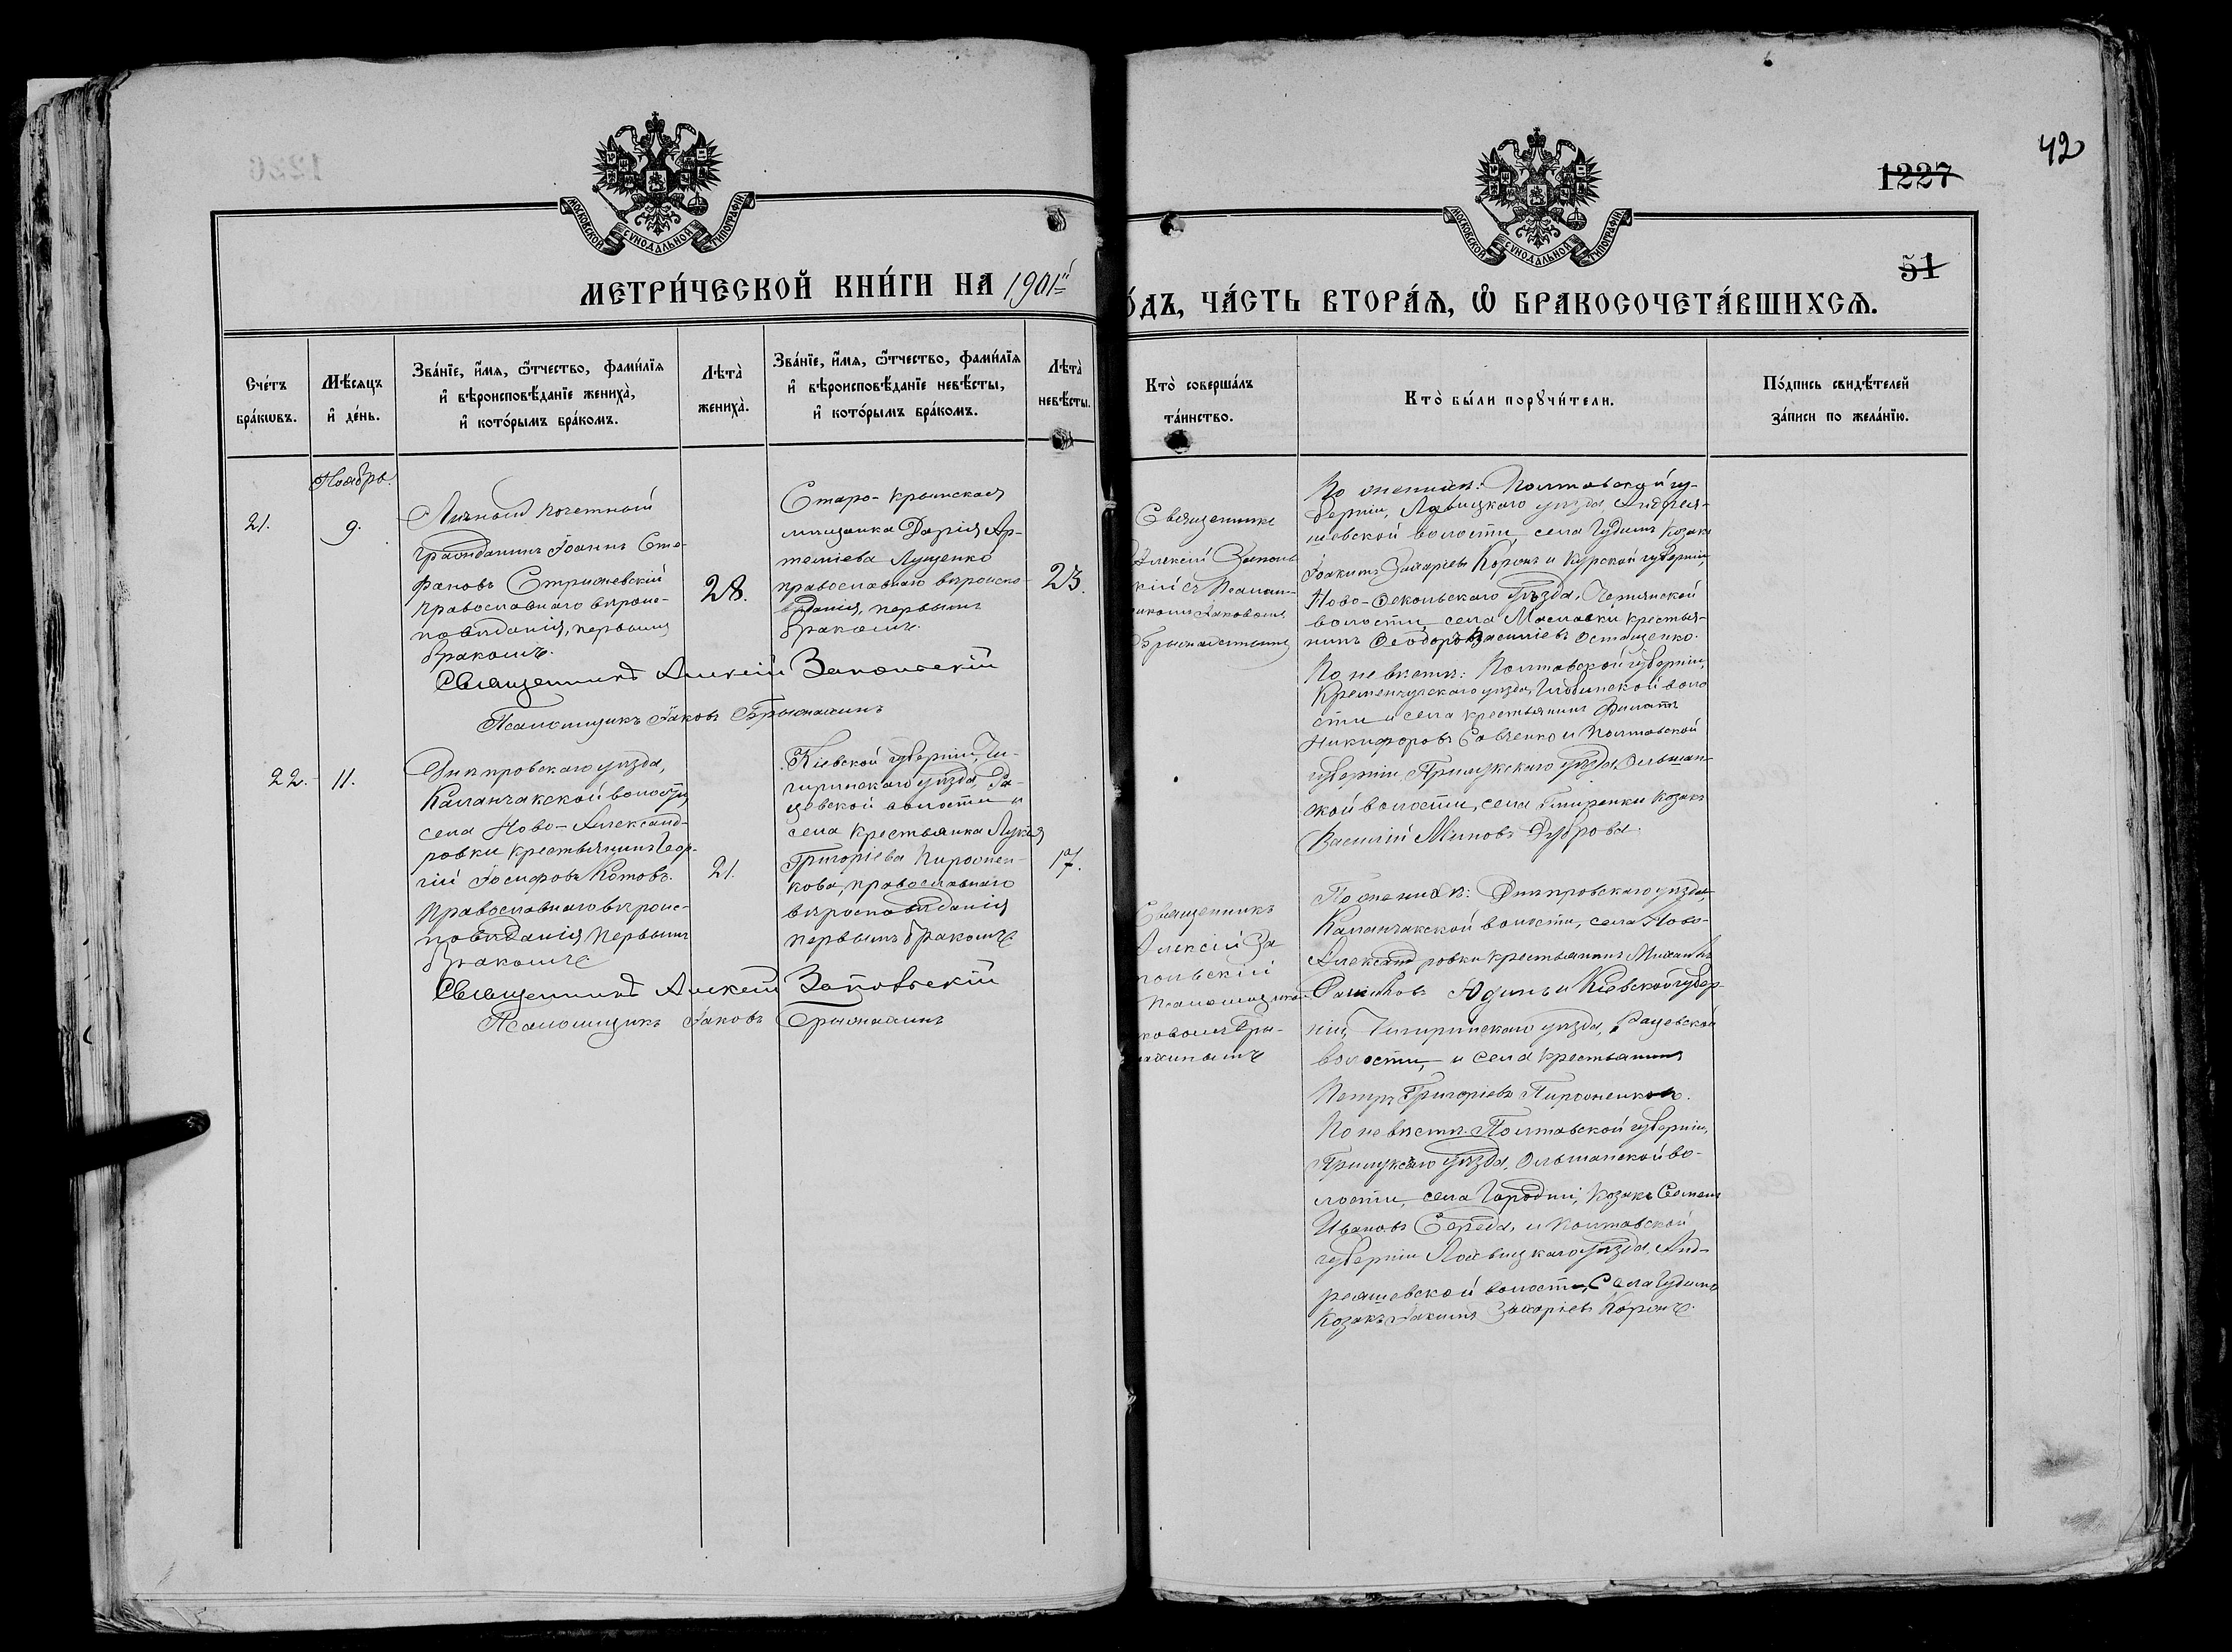 42
1227
51
МОСКОВСКОЙ СѴНОДАЛЬНОЙ ТИПОГРАФІИ
МОСКОВСКОЙ СѴНОДАЛЬНОЙ ТИПОГРАФІИ
МЕТРИ́ЧЕСКОЙ КНИ́ГИ НА 1901й
О́ДЪ, ЧА́СТЬ ВТОРА́Я, Ѿ БРАКОСОЧЕТА́ВШИХСЯ.
Сче́тъ бра́кѡвъ.
Мѣ́сяцъ и҆ де́нь.
Зва́нїе, и҆́мя, ѻ҆́тчество, фами́лїя
и҆ вѣроисповѣ́данїе жениха̀,
и҆ кото́рымъ бра́комъ.
Лѣта̀ жениха̀.
Зва́нїе, и҆́мя, ѻ҆́тчество, фами́лїя
и҆ вѣроисповѣ́данїе невѣ́сты,
и҆ кото́рымъ бра́комъ.
Лѣта̀ невѣ́сты.
Кто̀ соверша́лъ
та́инство.
Кто̀ бы́ли порꙋчи́тели.
По́дпись свидѣ́телей
за́писи по жела́нїю.
Ноябрь.
21.
9.
Личный почетный
гражданинъ Іоаннъ Сте-
фановъ Стрижевскій
православнаго вѣроис-
повѣданія, первымъ
бракомъ.
28.
Старо-Крымская
мѣщанка Дарія Ар-
теміева Луценко
православнаго вѣроиспо-
вѣданія, первымъ
бракомъ.
23.
Священникъ Алексій Запольскій
Псаломщикъ Іаковъ
Священникъ
Алексій Заполь
скій съ Псалом-
щикомъ Іаковомъ
По женихѣ: Полтавской гу-
берніи, Лохвицкаго уѣзда, Андрея-
шевской волости, села Гудимъ Козакъ
Іоакимъ Захаріевъ Коронъ и Курской губерніи,
Ново-Оскольскаго уѣзда, Чернянской
волости, села Масловки крестья-
нинъ Ѳеодоръ Василіевъ Остащенко.
По невѣстѣ: Полтавской губерніи,
Кременчугскаго уѣзда, Глобинской воло
сти и села крестьянинъ Филиппъ
Никифоровъ Савченко и Полтавской
губерніи Прилукскаго уѣзда Ольшан-
ской волости, села Гмирянки Козакъ
Василій Миновъ Дуброва.
22.
11.
Днѣпровскаго уѣзда,
Каланчакской волости,
села Ново-Александ-
ровки крестьянинъ Геор-
гій Іосифовъ Котовъ.
Православнаго вѣроис-
повѣданія Первымъ
бракомъ
21.
Кіевской губерніи, Чи-
гиринскаго уѣзда, Ра-
цевской волости и
села крестьянка Лукія
Григоріева Пироженкова,
православнаго
вѣроисповѣданія
первымъ бракомъ.
17.
Священникъ Алексій Запольскій
Псаломщикъ Іаковъ
Священникъ
Алексій За
польскій
Псаломщикомъ
По женихѣ: Днѣпровскаго уѣзда,
Каланчакской волости, села Ново-
Александровки крестьянинъ Михаилъ
Юдинъ и Кіевской губер-
ніи, Чигиринскаго уѣзда, Рацевской
волости, и села крестьянинъ
Петръ Григоріевъ Пироженковъ.
По невѣстѣ. Полтавской губерніи,
Прилукскаго уѣзда, Ольшанской во-
лости, села Городни, Козакъ Семенъ
Ивановъ Середа, и Полтавской
губерніи Лохвицкаго уѣзда, Анд-
реяшевской волости, Села Гудимъ
Козакъ Іакимъ Захаріевъ Коронъ.